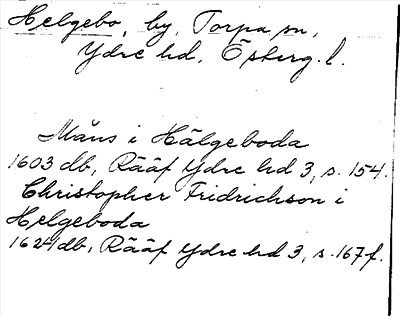 Helgebo, by, Torpa sn,
Ydre hd, Österg. l.
Måns i Hälgeboda
1603 db, Rääf Ydre hd 3, s. 154.
Christopher Fridrichson i
Helgeboda
1624 db, Rääf Ydre hd 3, s. 167 f.